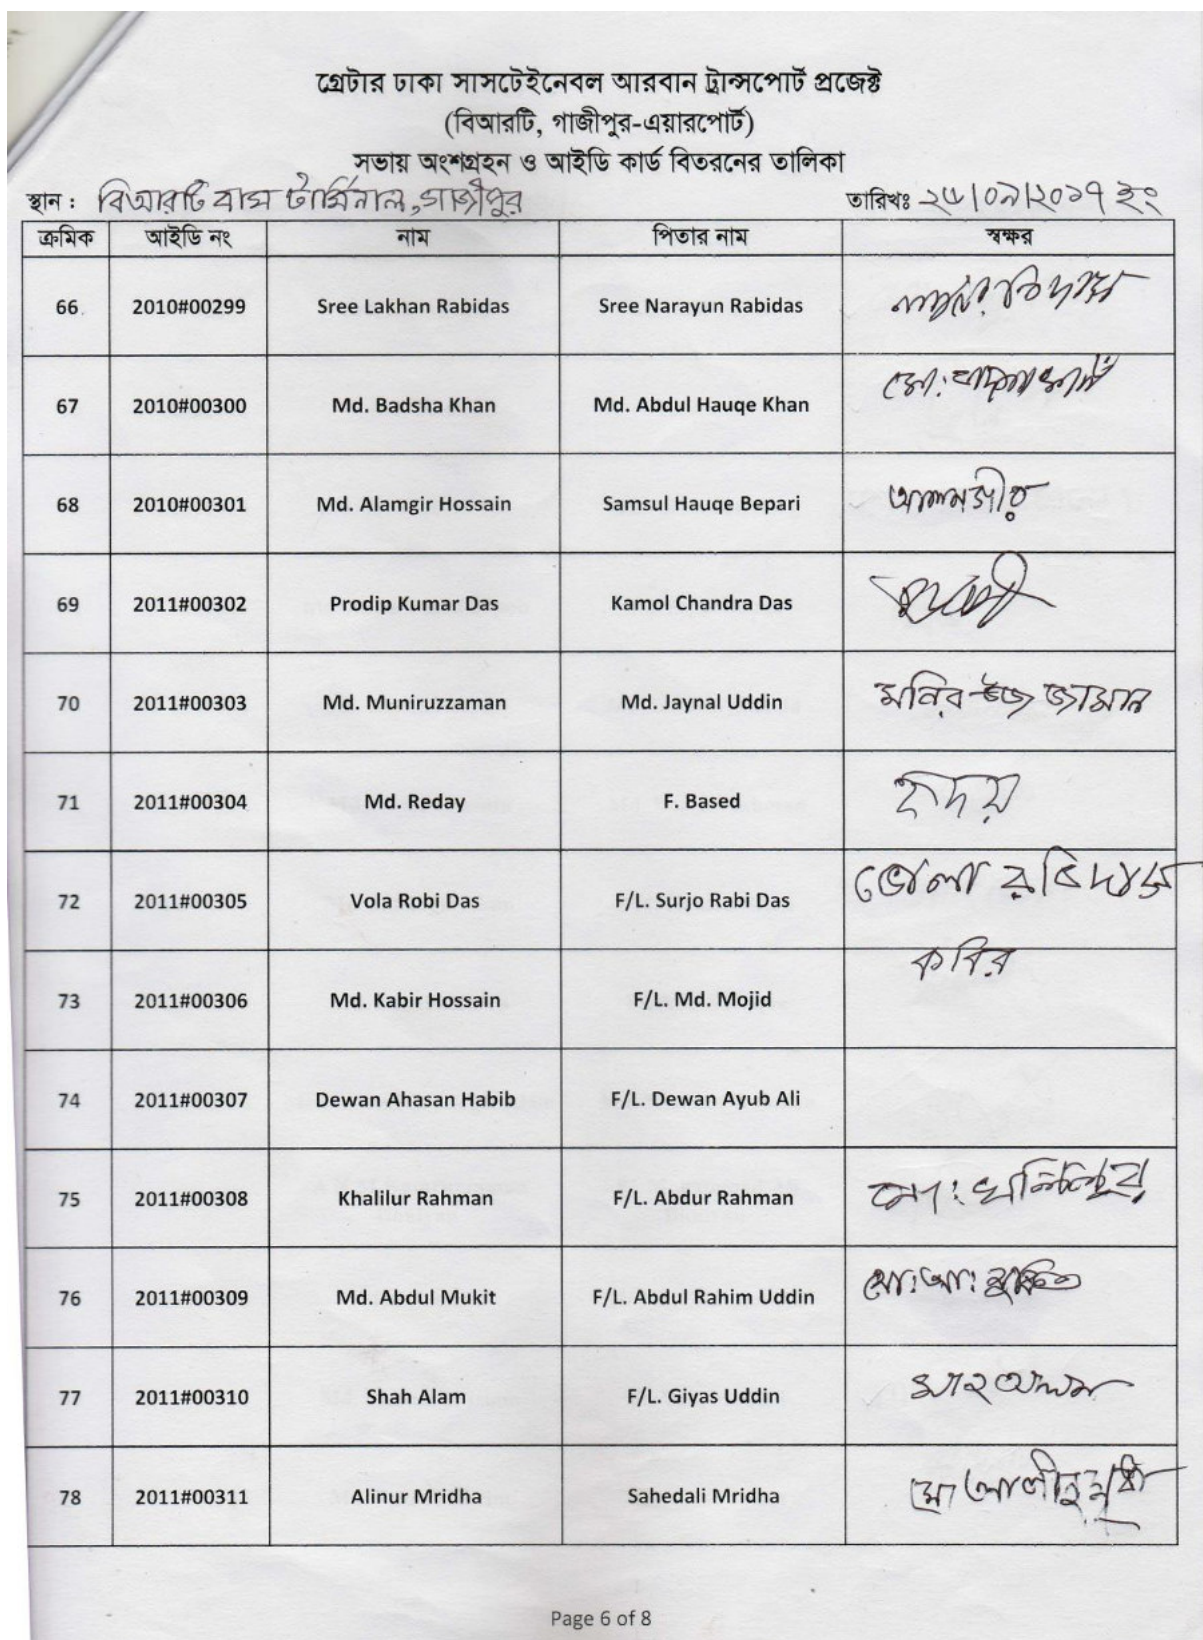 গ্রেটার ঢাকা সাসটেইনেবল আরবান ট্রান্সপোর্ট প্রজেক্ট
(বিআরটি, গাজীপুর-এয়ারপোর্ট)
সভায় অংশগ্রহন ও আইডি কার্ড বিতরনের তালিকা
স্থান : বিআরটি বাস টার্মিনাল, গাজীপুর তারিখঃ ২৫/০৯/২০১৭ ইং
ক্রমিক আইডি নং নাম পিতার নাম স্বক্ষর
66 2010#00299 Sree Lakhan Rabidas Sree Narayun Rabidas
67 2010#00300 Md. Badsha Khan Md. Abdul Hauqe Khan
68 2010#00301 Md. Alamgir Hossain Samsul Hauqe Bepari আলমগীর
69 2011#00302 Prodip Kumar Das Kamol Chandra Das
70 2011#00303 Md. Muniruzzaman Md. Jaynal Uddin মনির জামান
71 2011#00304 Md. Reday F. Based হৃদয়
72 2011#00305 Vola Robi Das F/L. Surjo Rabi Das ভোলা রবিদাস
73 2011#00306 Md. Kabir Hossain F/L. Md. Mojid কবির
74 2011#00307 Dewan Ahasan Habib F/L. Dewan Ayub Ali
75 2011#00308 Khalilur Rahman F/L. Abdur Rahman
76 2011#00309 Md. Abdul Mukit F/L. Abdul Rahim Uddin মোঃ আঃ মুকিত
77 2011#00310 Shah Alam F/L. Giyas Uddin
78 2011#00311 Alinur Mridha Sahedali Mridha
Page 6 of 8